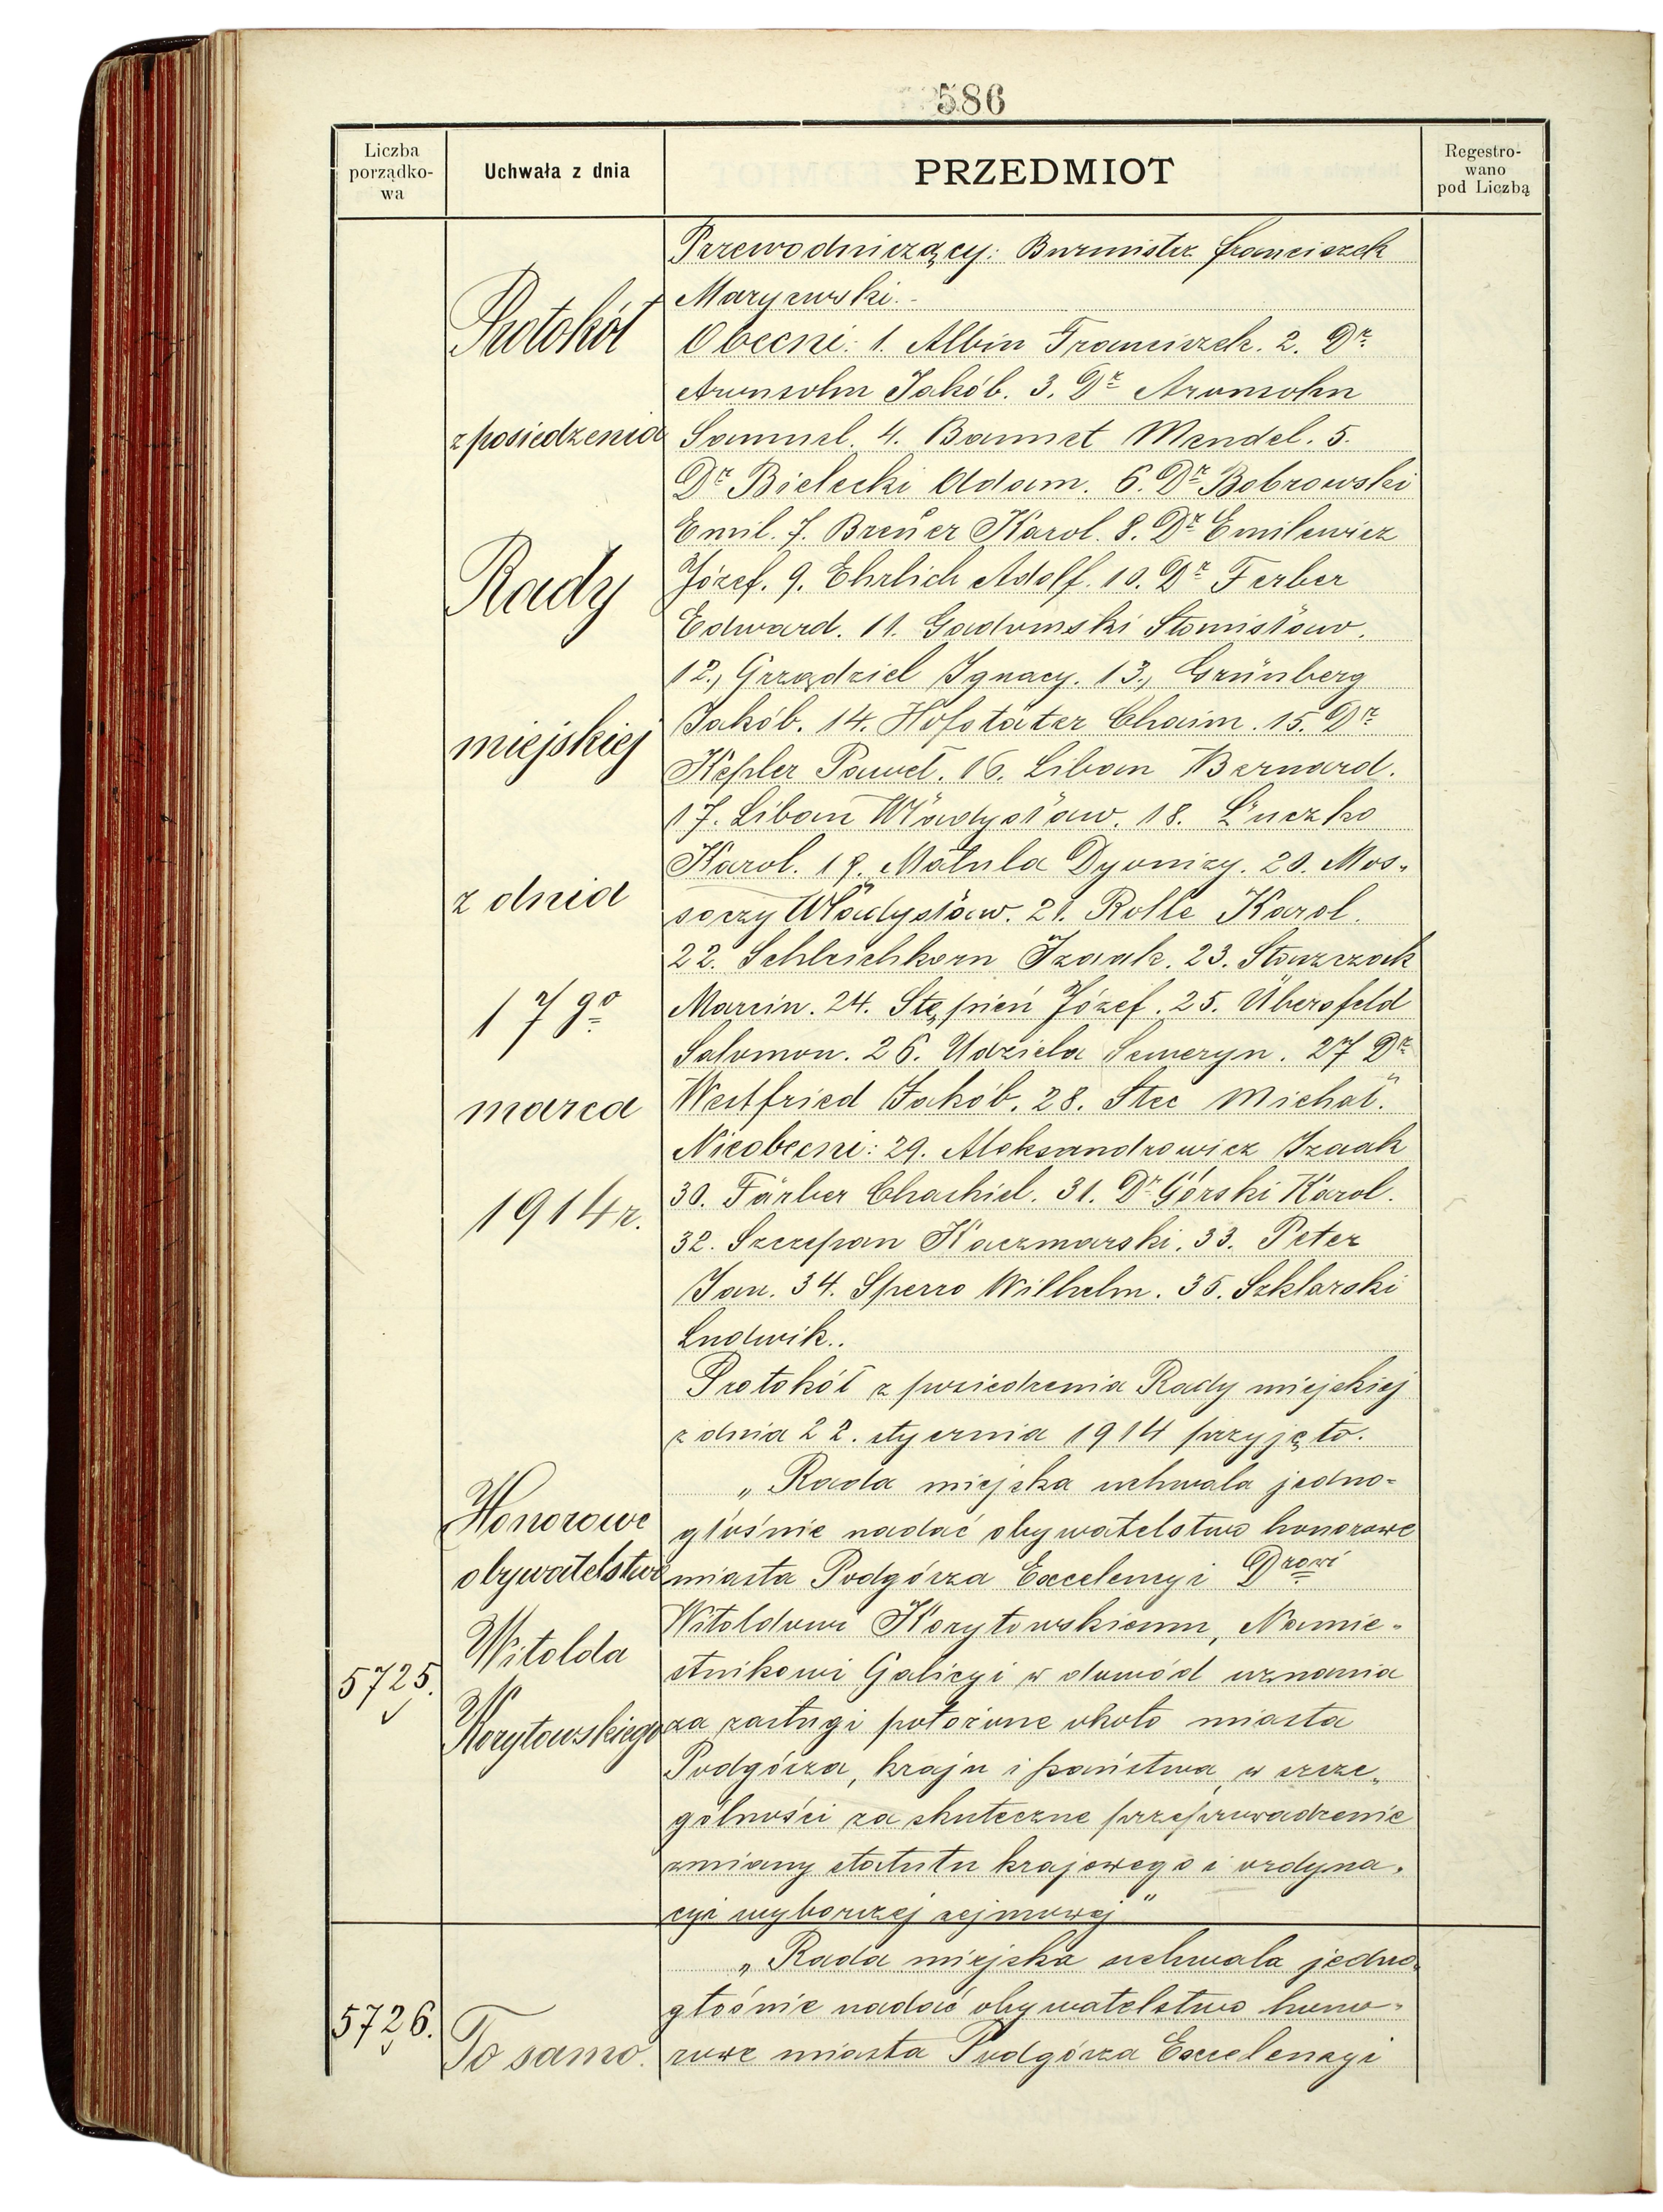 586
Liczba
porządko-
wa
Uchwała z dnia
PRZEDMIOT
Regestro-
wano
pod Liczbą
Protokół
z posiedzenia
Rady
miejskiej
z dnia
17go
marca
1914 r.
Przewodniczący: Burmistrz Franciszek
Maryewski.-
Obecni: 1. Albin Franciszek. 2. Dr.
Aronsohn Jakób. 3. Dr Aronsohn
Samuel. 4. Baumet Mendel. 5.
Dr Bielecki Adam. 6. Dr Bobrowski
Emil. 7. Breuer Karol. 8. Dr Emilewicz
Józef. 9. Ehrlich Adolf. 10. Dr Ferber
Edward. 11. Gadomski Stanisław.
12., Grządziel Ignacy. 13., Grünberg
Jakób. 14. Hofstäter Chaim. 15. Dr
Kepler Paweł. 16. Liban Bernard.
17. Liban Władysław. 18. Łuczko
Karol. 19. Matula Dyonizy. 20. Mos-
soczy Władysław. 21. Rolle Karol.
22. Schleichkorn Izaak. 23. Starzczak
Marcin. 24. Stępień Józef. 25. Übersfeld
Salomon. 26. Udziela Seweryn. 27 Dr
Westfried Jakób. 28. Stec Michał.
Nieobecni: 29. Aleksandrowicz Izaak
30. Färber Chaskiel. 31. Dr Górski Karol.
32. Szczepan Kaczmarski. 33. Peter
Jan. 34. Sperro Wilhelm. 35. Szklarski
Ludwik..
Protokół z posiedzenia Rady miejskiej
z dnia 22. stycznia 1914 przyjęto.
5725.
Honorowe
obywatelstwo
Witolda
Korytowskiego
„Rada miejska uchwala jedno-
głośnie nadać obywatelstwo honorowe
miasta Podgórza Excelencyi Drowi
Witoldowi Korytowskiemu, Namie-
stnikowi Galicyi w dowód uznania
za zasługi położone około miasta
Podgórza, kraju i państwa, w szcze-
gólności za skuteczne przeprowadzenie
zmiany statutu krajowego i ordyna-
cyi wyborczej sejmowej"
5726.
To samo.
„Rada miejska uchwala jedno-
głośnie nadać obywatelstwo hono-
rowe miasta Podgórza Excelencyi